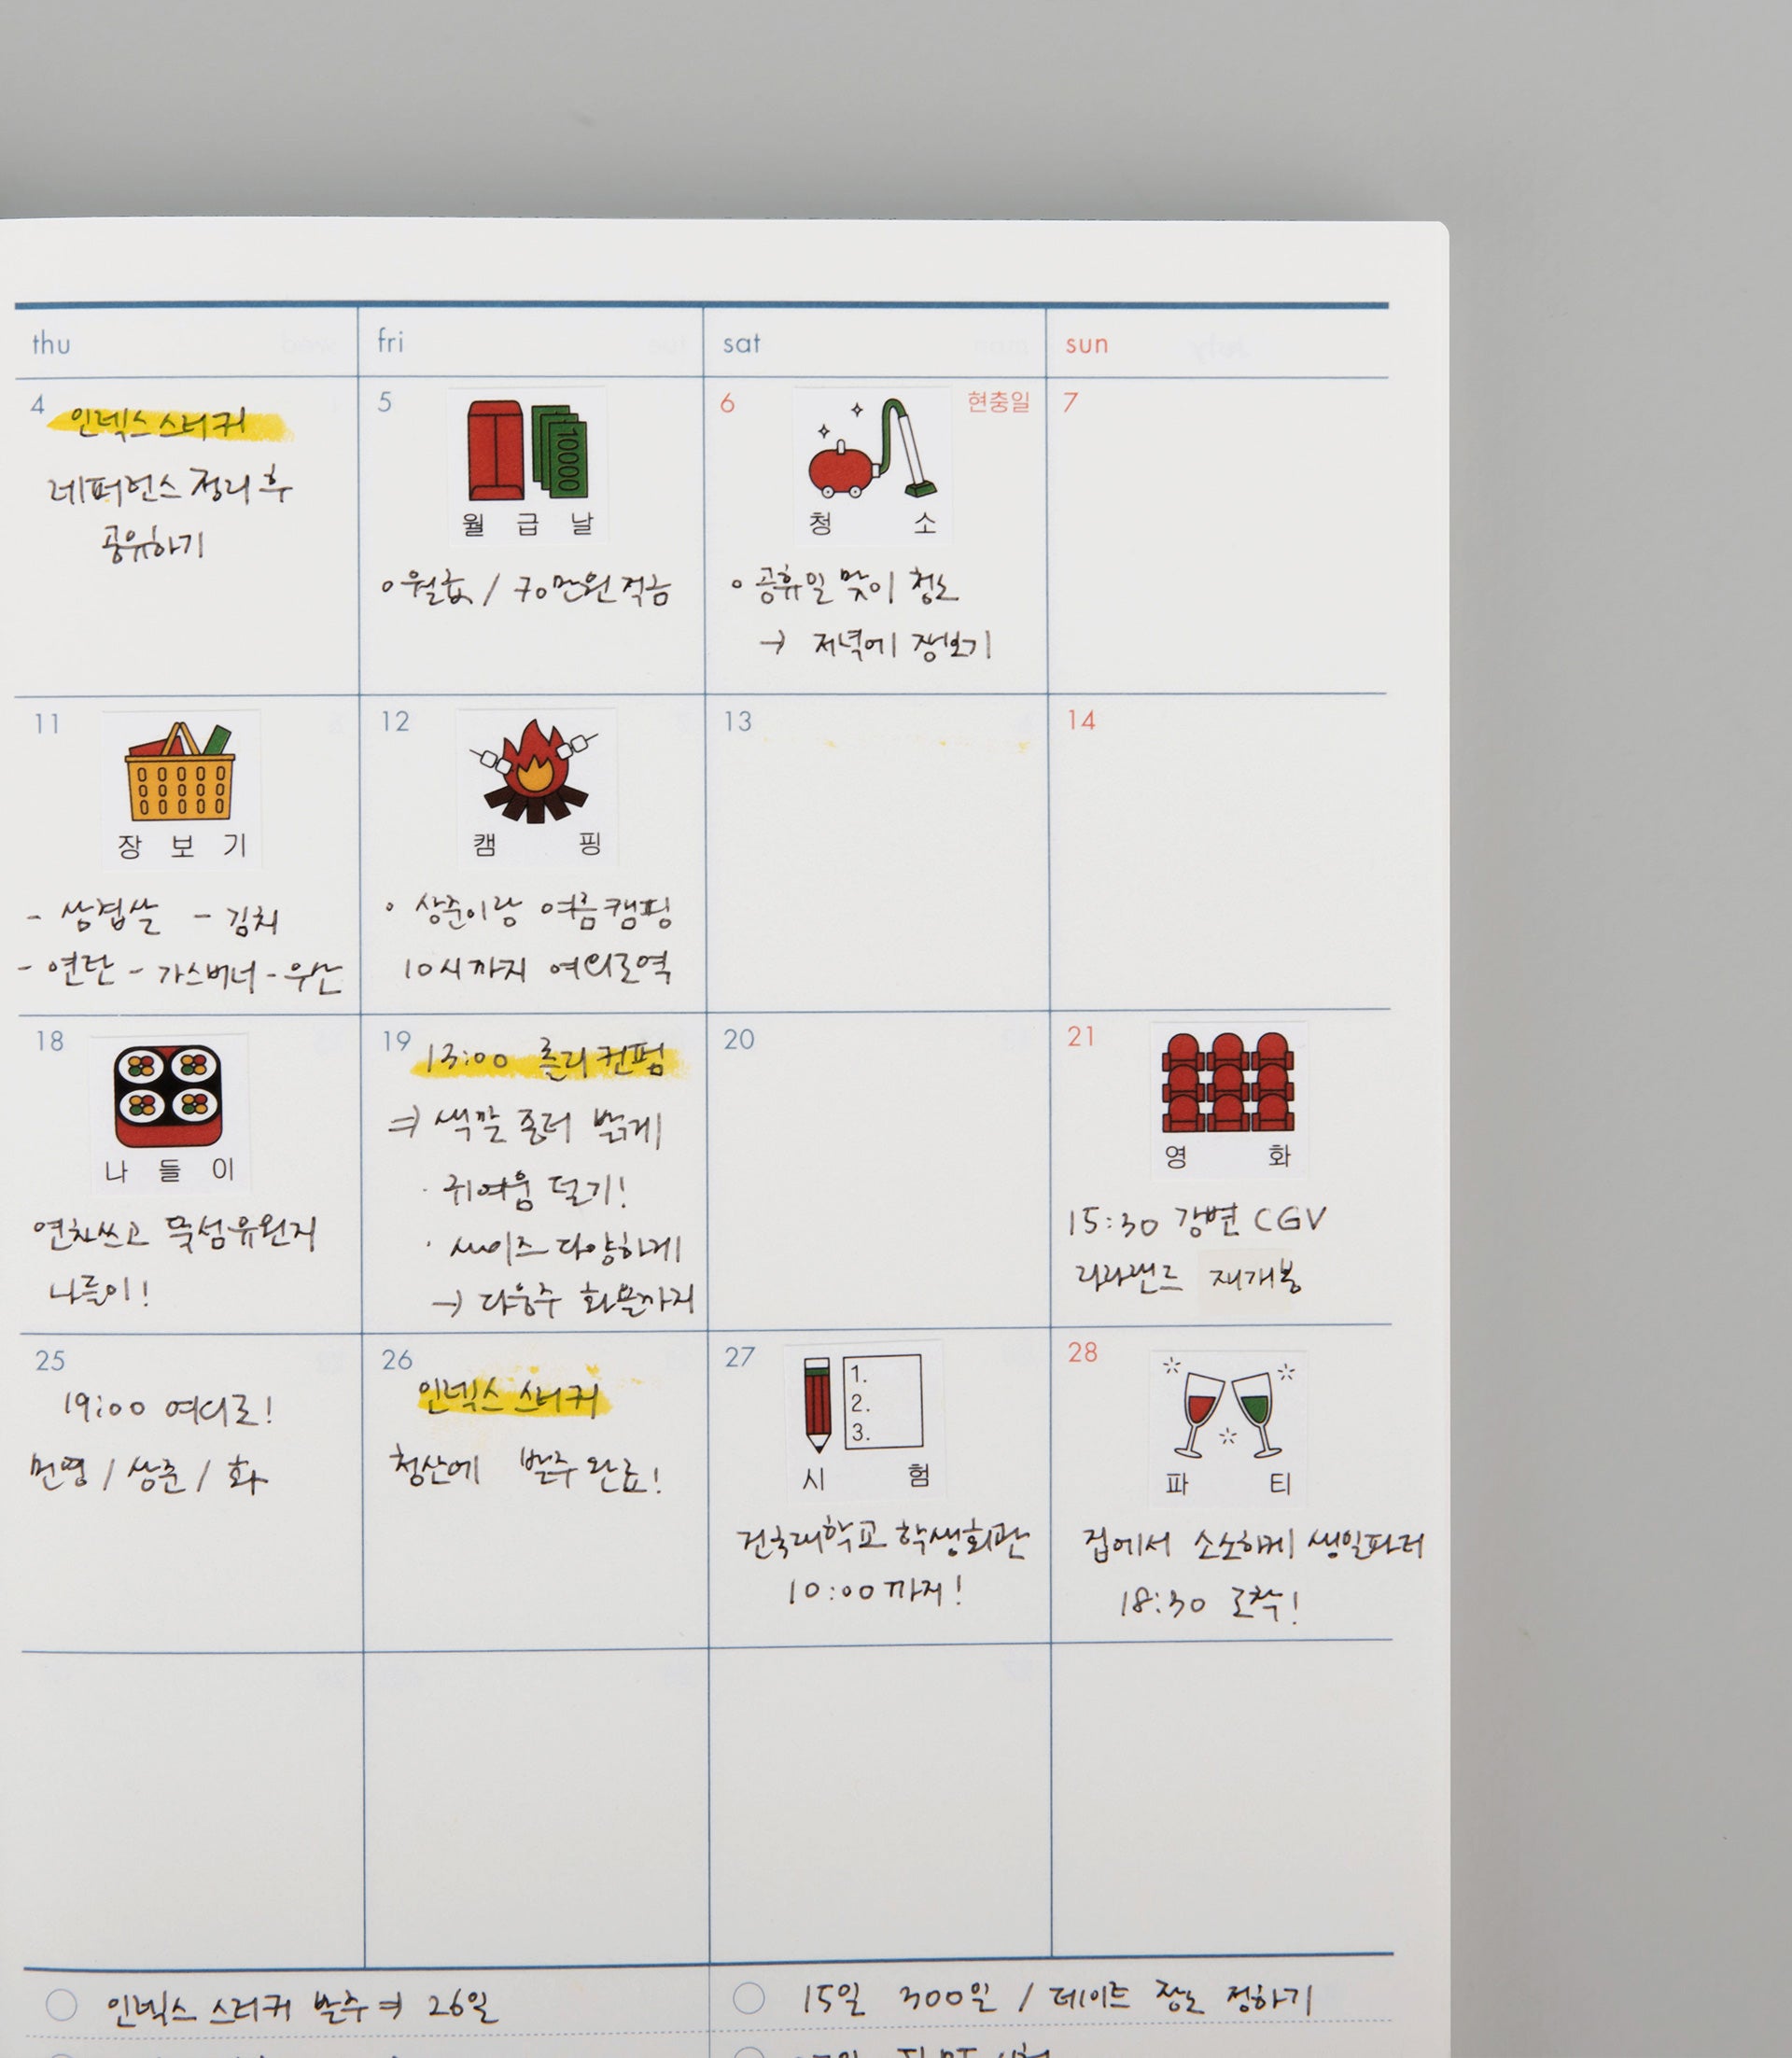 thu
fri
sat
sun
4
인덱스 스티커
레퍼런스 정리 후
공유하기
5
10000
월급날
월급 / 70만원 적금
6
현충일
청소
공휴일 맞이 청소
→ 저녁에 장보기
7
11
장보기
- 삼겹살 - 김치
- 연탄 - 가스버너 - 우산
12
캠핑
상준이랑 여름캠핑
10시까지 여의도역
13
14
18
나들이
연차쓰고 뚝섬유원지
나들이!
19
13:00 졸리 컨펌
⇒ 색깔 좀더 밝게
· 귀여움 덜기!
· 싸이즈 다양하게
→ 다음주 화욜까지
20
21
영화
15:30 강변 CGV
라라랜드 재개봉
25
19:00 여의도!
민영 / 상준 / 화
26
인덱스 스티커
청산에 발주 완료!
27
1.
2.
3.
시험
건국대학교 학생회관
10:00 까지!
28
파티
집에서 소소하게 생일파티
18:30 도착!
인덱스 스티커 발주 ⇒ 26일
15일 300일 / 데이트 장소 정하기